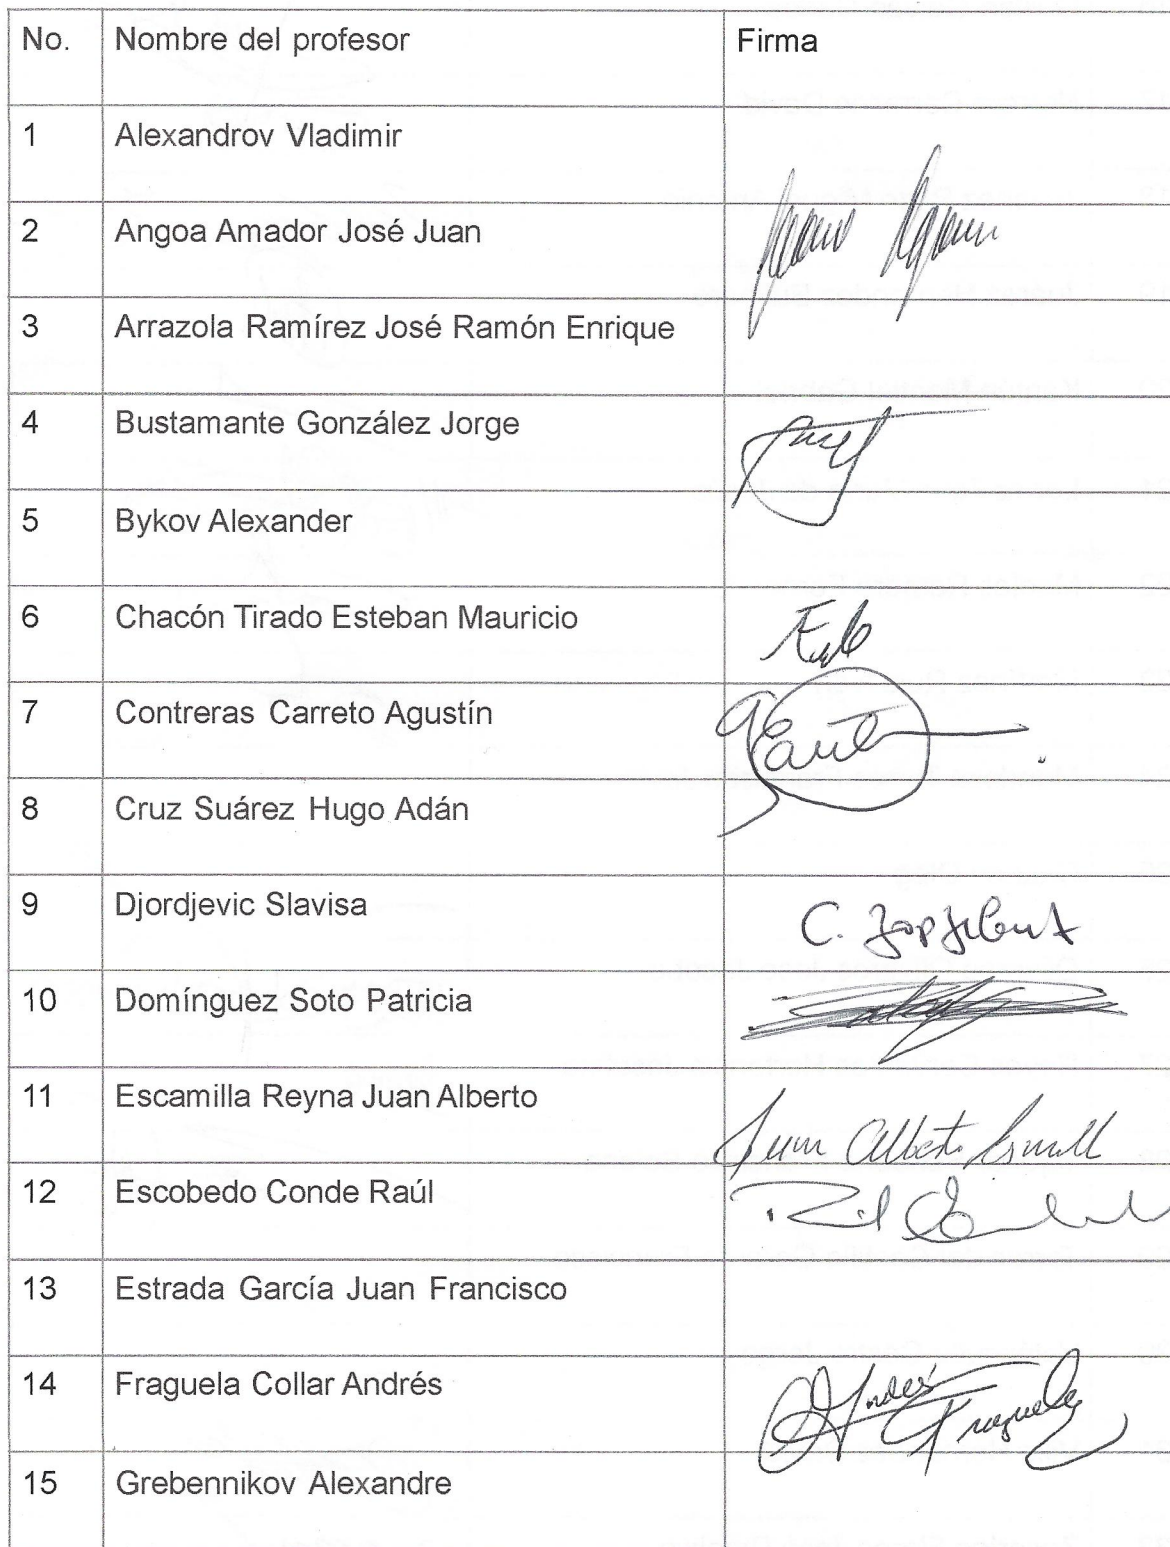 No. Nombre del profesor Firma
1 Alexandrov Vladimir
2 Angoa Amador José Juan
3 Arrazola Ramírez José Ramón Enrique
4 Bustamante González Jorge
5 Bykov Alexander
6 Chacón Tirado Esteban Mauricio
7 Contreras Carreto Agustín
8 Cruz Suárez Hugo Adán
9 Djordjevic Slavisa C.
10 Domínguez Soto Patricia
11 Escamilla Reyna Juan Alberto Juan Alberto
12 Escobedo Conde Raúl
13 Estrada García Juan Francisco
14 Fraguela Collar Andrés Andrés Fraguela
15 Grebennikov Alexandre